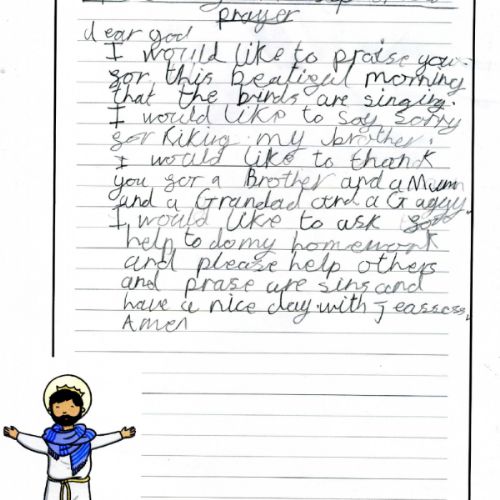 prayer
Dear God
I would like to praise you
gor this beatigul morning
that the birds are singing.
I would like to say sorry
gor Kiking my brother.
I would like to thank
you gor a Brother and a Mum
and a Grandad and a Gaggy.
I would like to ask
help to do my homework
and please help others
and prase are sins and
have a nice day with Jeassess.
Amen